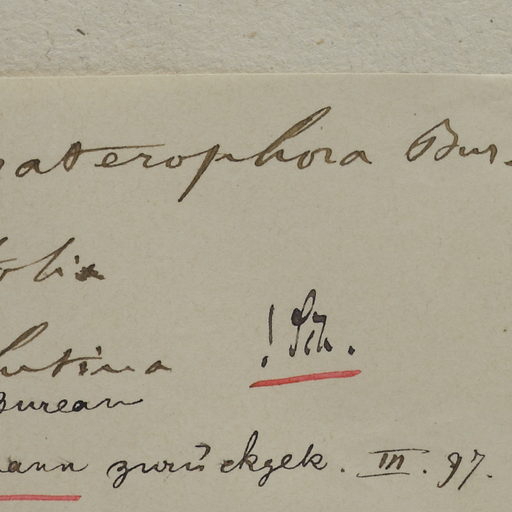 aterophora Bur.
folia
lutina ! Sch.
Bureau
ann zurückgek. III. 97.